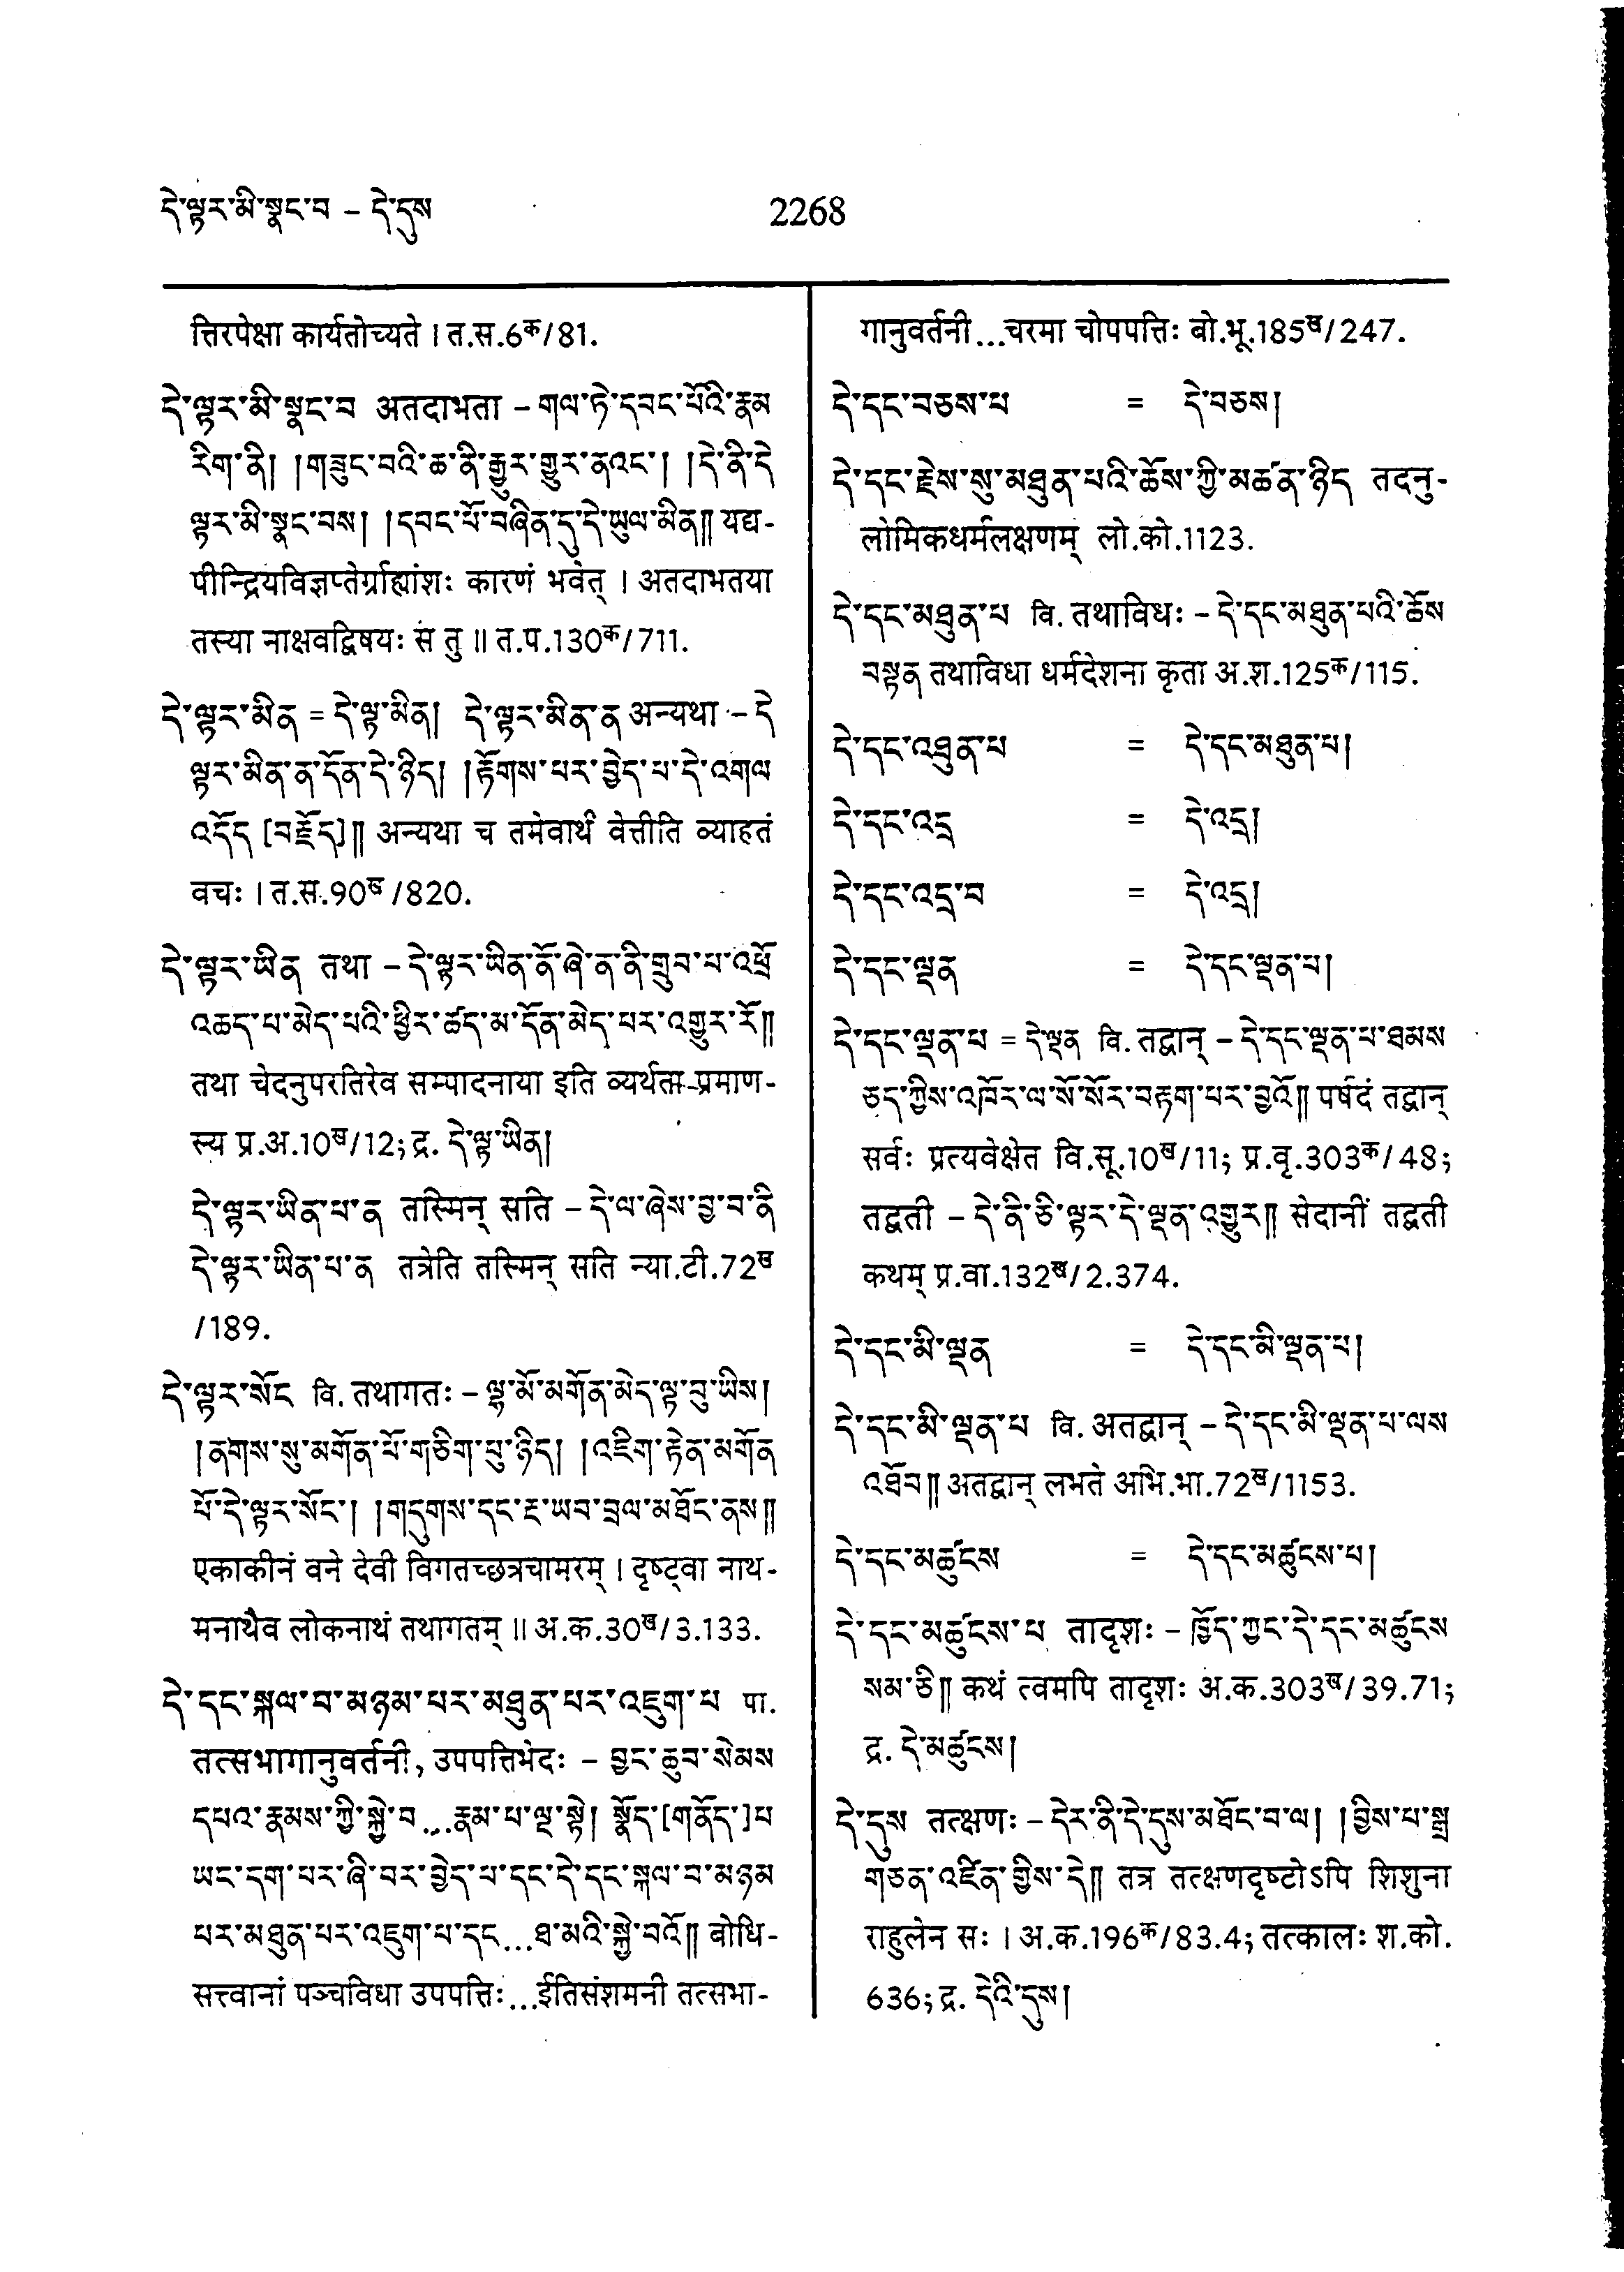 དེ་ལྟར་མི་སྣང་བ – དེ་དུས
2268
त्तिरपेक्षा कार्यतोच्यते । त.स.6क/81.
དེ་ལྟར་མི་སྣང་བ अतदाभता – གལ་ཏེ་དབང་པོའི་རྣམ
རིག་ནི། །གཟུང་བའི་ཆ་ནི་རྒྱུར་གྱུར་ནའང་། །དེ་ནི་དེ
ལྟར་མི་སྣང་བས། །དབང་པོ་བཞིན་དུ་དེ་ཡུལ་མིན༎ यद्य-
पीन्द्रियविज्ञप्तेर्ग्राह्यांशः कारणं भवेत् । अतदाभतया
तस्या नाक्षवद्विषयः स तु ॥ त.प.130क/711.
དེ་ལྟར་མིན = དེ་ལྟ་མིན། དེ་ལྟར་མིན་ན अन्यथा – དེ
ལྟར་མིན་ན་དོན་དེ་ཉིད། །རྟོགས་པར་བྱེད་པ་དེ་འགལ
འདོད [བརྗོད]༎ अन्यथा च तमेवार्थं वेत्तीति व्याहतं
वचः । त.स.90ख/820.
དེ་ལྟར་ཡིན तथा – དེ་ལྟར་ཡིན་ནོ་ཞེ་ན་ནི་གྲུབ་པ་འཕྲོ
འཆད་པ་མེད་པའི་ཕྱིར་ཚད་མ་དོན་མེད་པར་འགྱུར་རོ༎
तथा चेदनुपरतिरेव सम्पादनाया इति व्यर्थता प्रमाण-
स्य प्र.अ.10ख/12; द्र. དེ་ལྟ་ཡིན།
དེ་ལྟར་ཡིན་པ་ན तस्मिन् सति – དེ་ལ་ཞེས་བྱ་བ་ནི
དེ་ལྟར་ཡིན་པ་ན तत्रेति तस्मिन् सति न्या.टी.72ख
/189.
དེ་ལྟར་སོང वि. तथागतः – ལྷ་མོ་མགོན་མེད་ལྟ་བུ་ཡིས།
།ནགས་སུ་མགོན་པོ་གཅིག་པུ་ཉིད། །འཇིག་རྟེན་མགོན
པོ་དེ་ལྟར་སོང་། །གདུགས་དང་རྔ་ཡབ་བྲལ་མཐོང་ནས༎
एकाकीनं वने देवी विगतच्छत्रचामरम् । दृष्ट्वा नाथ-
मनाथैव लोकनाथं तथागतम् ॥ अ.क.30ख/3.133.
དེ་དང་སྐལ་བ་མཉམ་པར་མཐུན་པར་འཇུག་པ पा.
तत्सभागानुवर्तनी, उपपत्तिभेदः – བྱང་ཆུབ་སེམས
དཔའ་རྣམས་ཀྱི་སྐྱེ་བ...རྣམ་པ་ལྔ་སྟེ། སྣོད་[གནོད་]པ
ཡང་དག་པར་ཞི་བར་བྱེད་པ་དང་དེ་དང་སྐལ་བ་མཉམ
པར་མཐུན་པར་འཇུག་པ་དང...ཐ་མའི་སྐྱེ་བའོ༎ बोधि-
सत्त्वानां पञ्चविधा उपपत्तिः...ईतिसंशमनी तत्सभा-
गानुवर्तनी...चरमा चोपपत्तिः बो.भू.185ख/247.
དེ་དང་བཅས་པ = དེ་བཅས།
དེ་དང་རྗེས་སུ་མཐུན་པའི་ཆོས་ཀྱི་མཚན་ཉིད तदनु-
लोमिकधर्मलक्षणम् लो.को.1123.
དེ་དང་མཐུན་པ वि. तथाविधः – དེ་དང་མཐུན་པའི་ཆོས
བསྟན तथाविधा धर्मदेशना कृता अ.श.125क/115.
དེ་དང་འཐུན་པ = དེ་དང་མཐུན་པ།
དེ་དང་འདྲ = དེ་འདྲ།
དེ་དང་འདྲ་བ = དེ་འདྲ།
དེ་དང་ལྡན = དེ་དང་ལྡན་པ།
དེ་དང་ལྡན་པ = དེ་ལྡན वि. तद्वान् – དེ་དང་ལྡན་པ་ཐམས
ཅད་ཀྱིས་འཁོར་ལ་སོ་སོར་བརྟག་པར་བྱའོ༎ पर्षदं तद्वान्
सर्वः प्रत्यवेक्षेत वि.सू.10ख/11; प्र.वृ.303क/48;
तद्वती – དེ་ནི་ཅི་ལྟར་དེ་ལྡན་འགྱུར༎ सेदानीं तद्वती
कथम् प्र.वा.132ख/2.374.
དེ་དང་མི་ལྡན = དེ་དང་མི་ལྡན་པ།
དེ་དང་མི་ལྡན་པ वि. अतद्वान् – དེ་དང་མི་ལྡན་པ་ལས
འཐོབ༎ अतद्वान् लभते अभि.भा.72ख/1153.
དེ་དང་མཚུངས = དེ་དང་མཚུངས་པ།
དེ་དང་མཚུངས་པ तादृशः – ཁྱོད་ཀྱང་དེ་དང་མཚུངས
སམ་ཅི༎ कथं त्वमपि तादृशः अ.क.303ख/39.71;
द्र. དེ་མཚུངས།
དེ་དུས तत्क्षणः – དེར་ནི་དེ་དུས་མཐོང་བ་ལ། །བྱིས་པ་སྒྲ
གཅན་འཛིན་གྱིས་དེ༎ तत्र तत्क्षणदृष्टोऽपि शिशुना
राहुलेन सः । अ.क.196क/83.4; तत्कालः श.को.
636; द्र. དེའི་དུས།